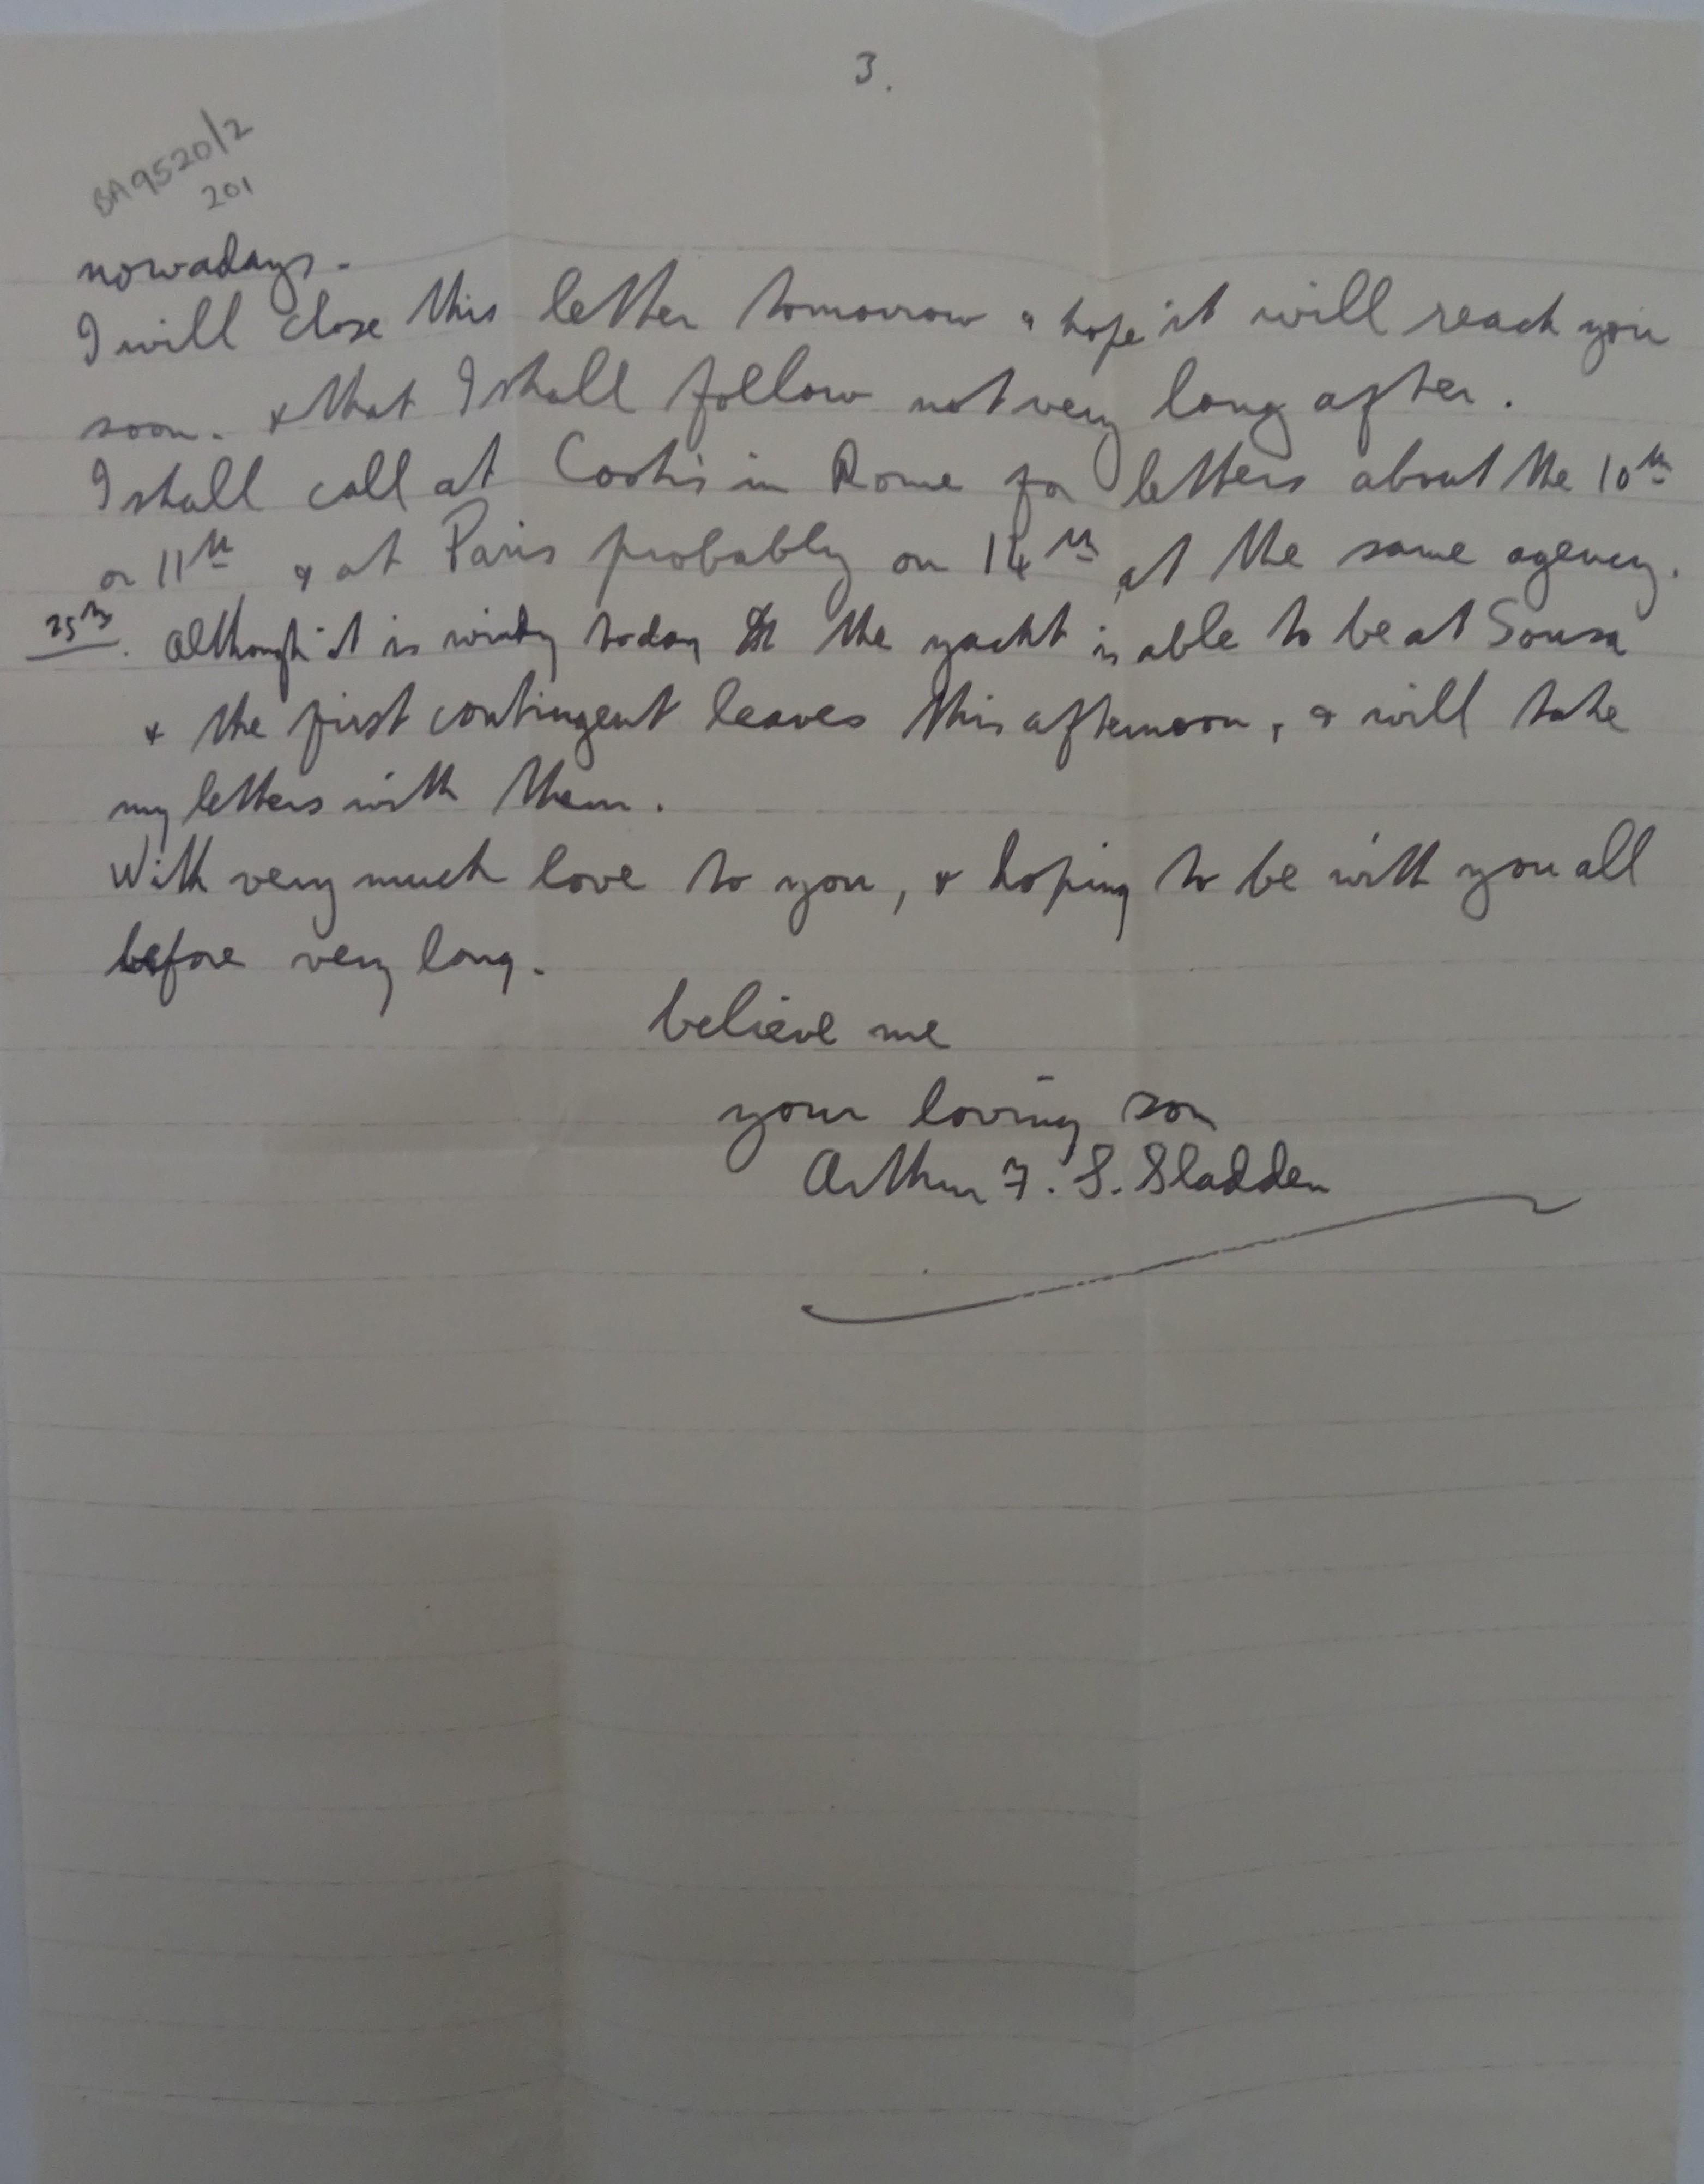 3.
BA9520/2
201
nowadays.
I will close this letter tomorrow & hope it will reach you
soon. & that I shall follow not very long after.
I shall call at Cook's in Rome for letters about the 10th
or 11th & at Paris probably on 14th at the same agency.
25th. Although it is windy today the yacht is able to be at Sousa
& the first contingent leaves this afternoon, & will take
my letters with them.
With very much love to you, & hoping to be with you all
before very long.
believe me
your loving son
Arthur F. S. Sladden